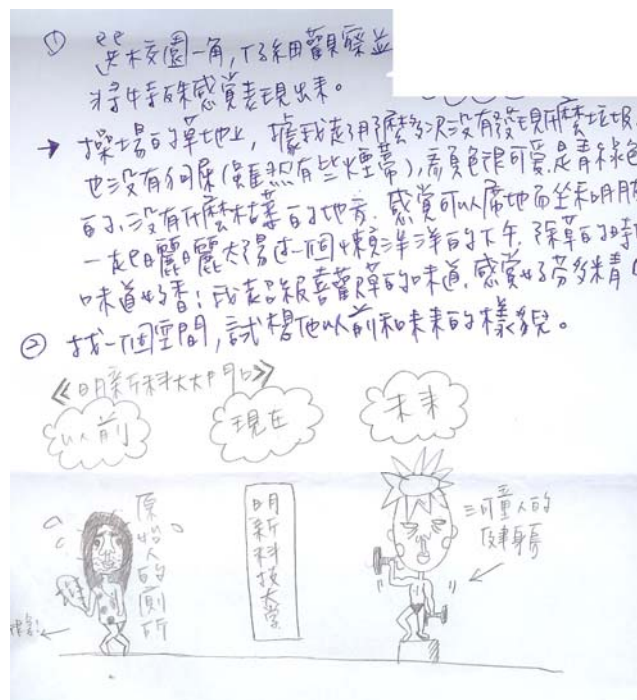 ① 選校園一角,仔細觀察並
將特殊感覺表現出來。
→ 操場的草地上,據我走那麼多次沒有發現什麼垃圾
也沒有狗屎(雖然有些煙蒂),顏色很可愛是青綠色
的,沒有什麼枯葉的地方.感覺可以席地而坐和朋友
一起曬曬太陽過一個懶洋洋的下午.除草的時
味道好香!我超級喜歡草的味道.感覺好芬多精
② 找一個空間,試想他以前和未來的樣貌。
《明新科大大門口》
以前 現在 未來
原始人的廁所
明新科技大學
三呵童人的
健身房